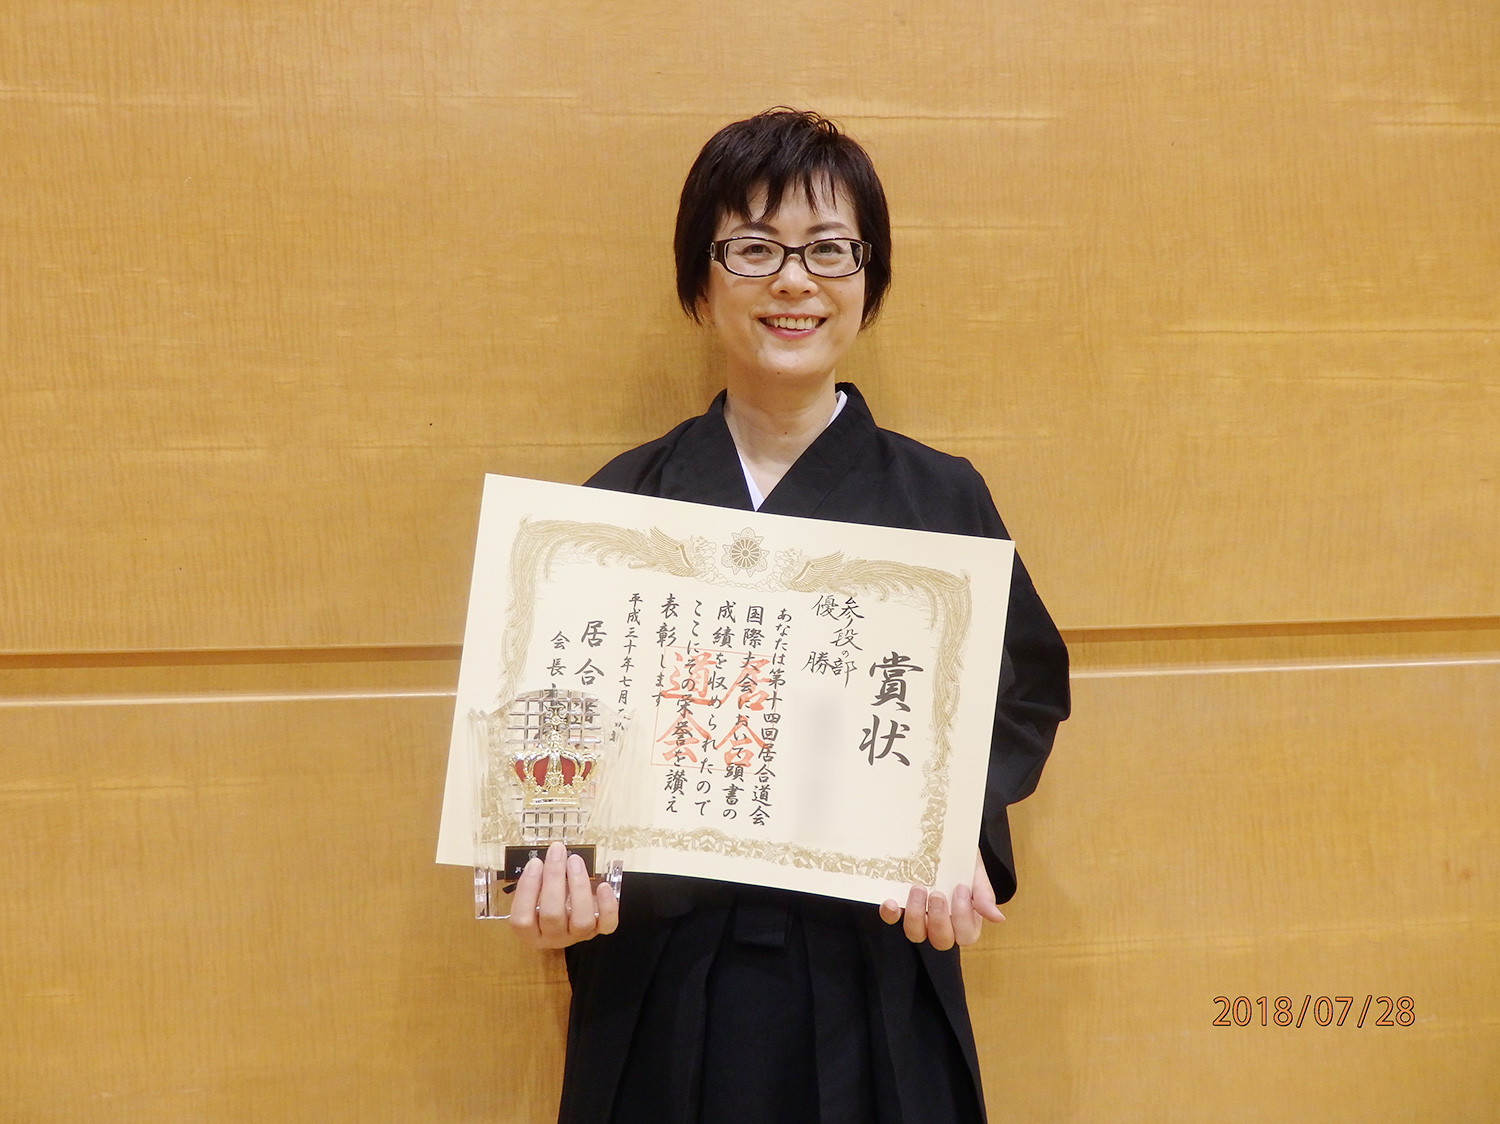 賞状
参段の部
優勝
あなたは第十四回居合道会
国際大会において頭書の
成績を収められたので
ここにその栄誉を讃え
表彰します
平成三十年七月
居合道
会長
居合
道会
優
2018/07/28